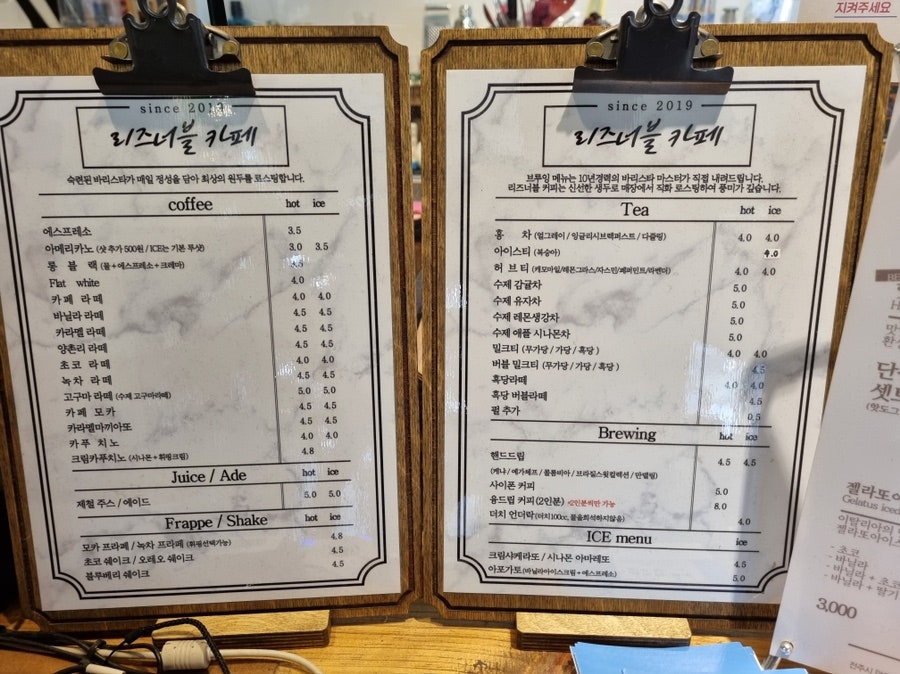 지켜주세요
since 2019
리즈너블 카페
숙련된 바리스타가 매일 정성을 담아 최상의 원두를 로스팅합니다.
coffee hot ice
에스프레소 3.5
아메리카노 (샷 추가 500원 / ICE는 기본 투샷) 3.0 3.5
롱 블 랙 (물+에스프레소+크레마) 3.5
Flat white 4.0
카 페 라 떼 4.0 4.0
바닐라 라떼 4.5 4.5
카라멜 라떼 4.5 4.5
양촌리 라떼 4.5 4.5
초 코 라 떼 4.0 4.0
녹 차 라 떼 4.5 4.5
고구마 라떼 (수제 고구마라떼) 5.0 5.0
카 페 모 카 4.5 4.5
카라멜마끼아또 4.5 4.5
카 푸 치 노 4.0 4.0
크림카푸치노 (시나몬+휘핑크림) 4.8
Juice / Ade hot ice
제철 주스 / 에이드 5.0 5.0
Frappe / Shake hot ice
모카 프라페 / 녹차 프라페 (휘핑선택가능) 4.8
초코 쉐이크 / 오레오 쉐이크 4.5
블루베리 쉐이크 4.5
since 2019
리즈너블 카페
브루잉 메뉴는 10년경력의 바리스타 마스터가 직접 내려드립니다.
리즈너블 커피는 신선한 생두로 매장에서 직화 로스팅하여 풍미가 깊습니다.
Tea hot ice
홍 차 (얼그레이 / 잉글리시브랙퍼스트 / 다즐링) 4.0 4.0
아이스티 (복숭아) 4.0
허 브 티 (캐모마일/레몬그라스/자스민/페퍼민트/라벤더) 4.0 4.0
수제 감귤차 5.0
수제 유자차 5.0
수제 레몬생강차 5.0
수제 애플 시나몬차 5.0
밀크티 (무가당 / 가당 / 흑당) 4.0 4.0
버블 밀크티 (무가당 / 가당 / 흑당) 4.5
흑당라떼 4.0 4.0
흑당 버블라떼 4.5
펄 추가 0.5
Brewing hot ice
핸드드립 4.5 4.5
(케냐 / 예가체프 / 콜롬비아 / 브라질스윗컬렉션 / 만델링)
사이폰 커피 5.0
융드립 커피 (2인분) *2인분씩만 가능 8.0
더치 언더락 (더치100cc, 물을희석하지않음) 4.0
ICE menu ice
크림샤케라또 / 시나몬 아마레또 4.5
아포가토 (바닐라아이스크림+에스프레소) 5.0
젤라또아
Gelatus iced
이탈리아의
젤라또아이
- 초코
- 바닐라
- 바닐라 + 초코
- 바닐라 + 딸기
3,000